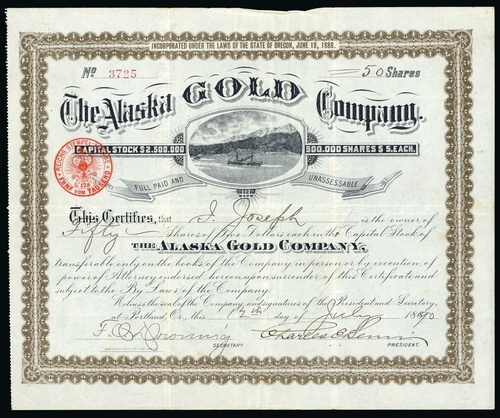 INCORPORATED UNDER THE LAWS OF THE STATE OF OREGON, JUNE 19, 1888.
No 3725
50 Shares
The Alaska GOLD Company.
CAPITAL STOCK $2,500,000
500,000 SHARES $5. EACH.
FULL PAID AND UNASSESSABLE
This Certifies, that I. Joseph is the owner of
Fifty Shares of Five Dollars each in the Capital Stock of
THE ALASKA GOLD COMPANY,
transferable only on the books of the Company in person or by execution of
power of Attorney endorsed hereon upon surrender of this Certificate and
subject to the By Laws of the Company.
Witness the seal of the Company and signatures of the President and Secretary,
at Portland, Or., this 12th day of July 1890
SECRETARY.
PRESIDENT.